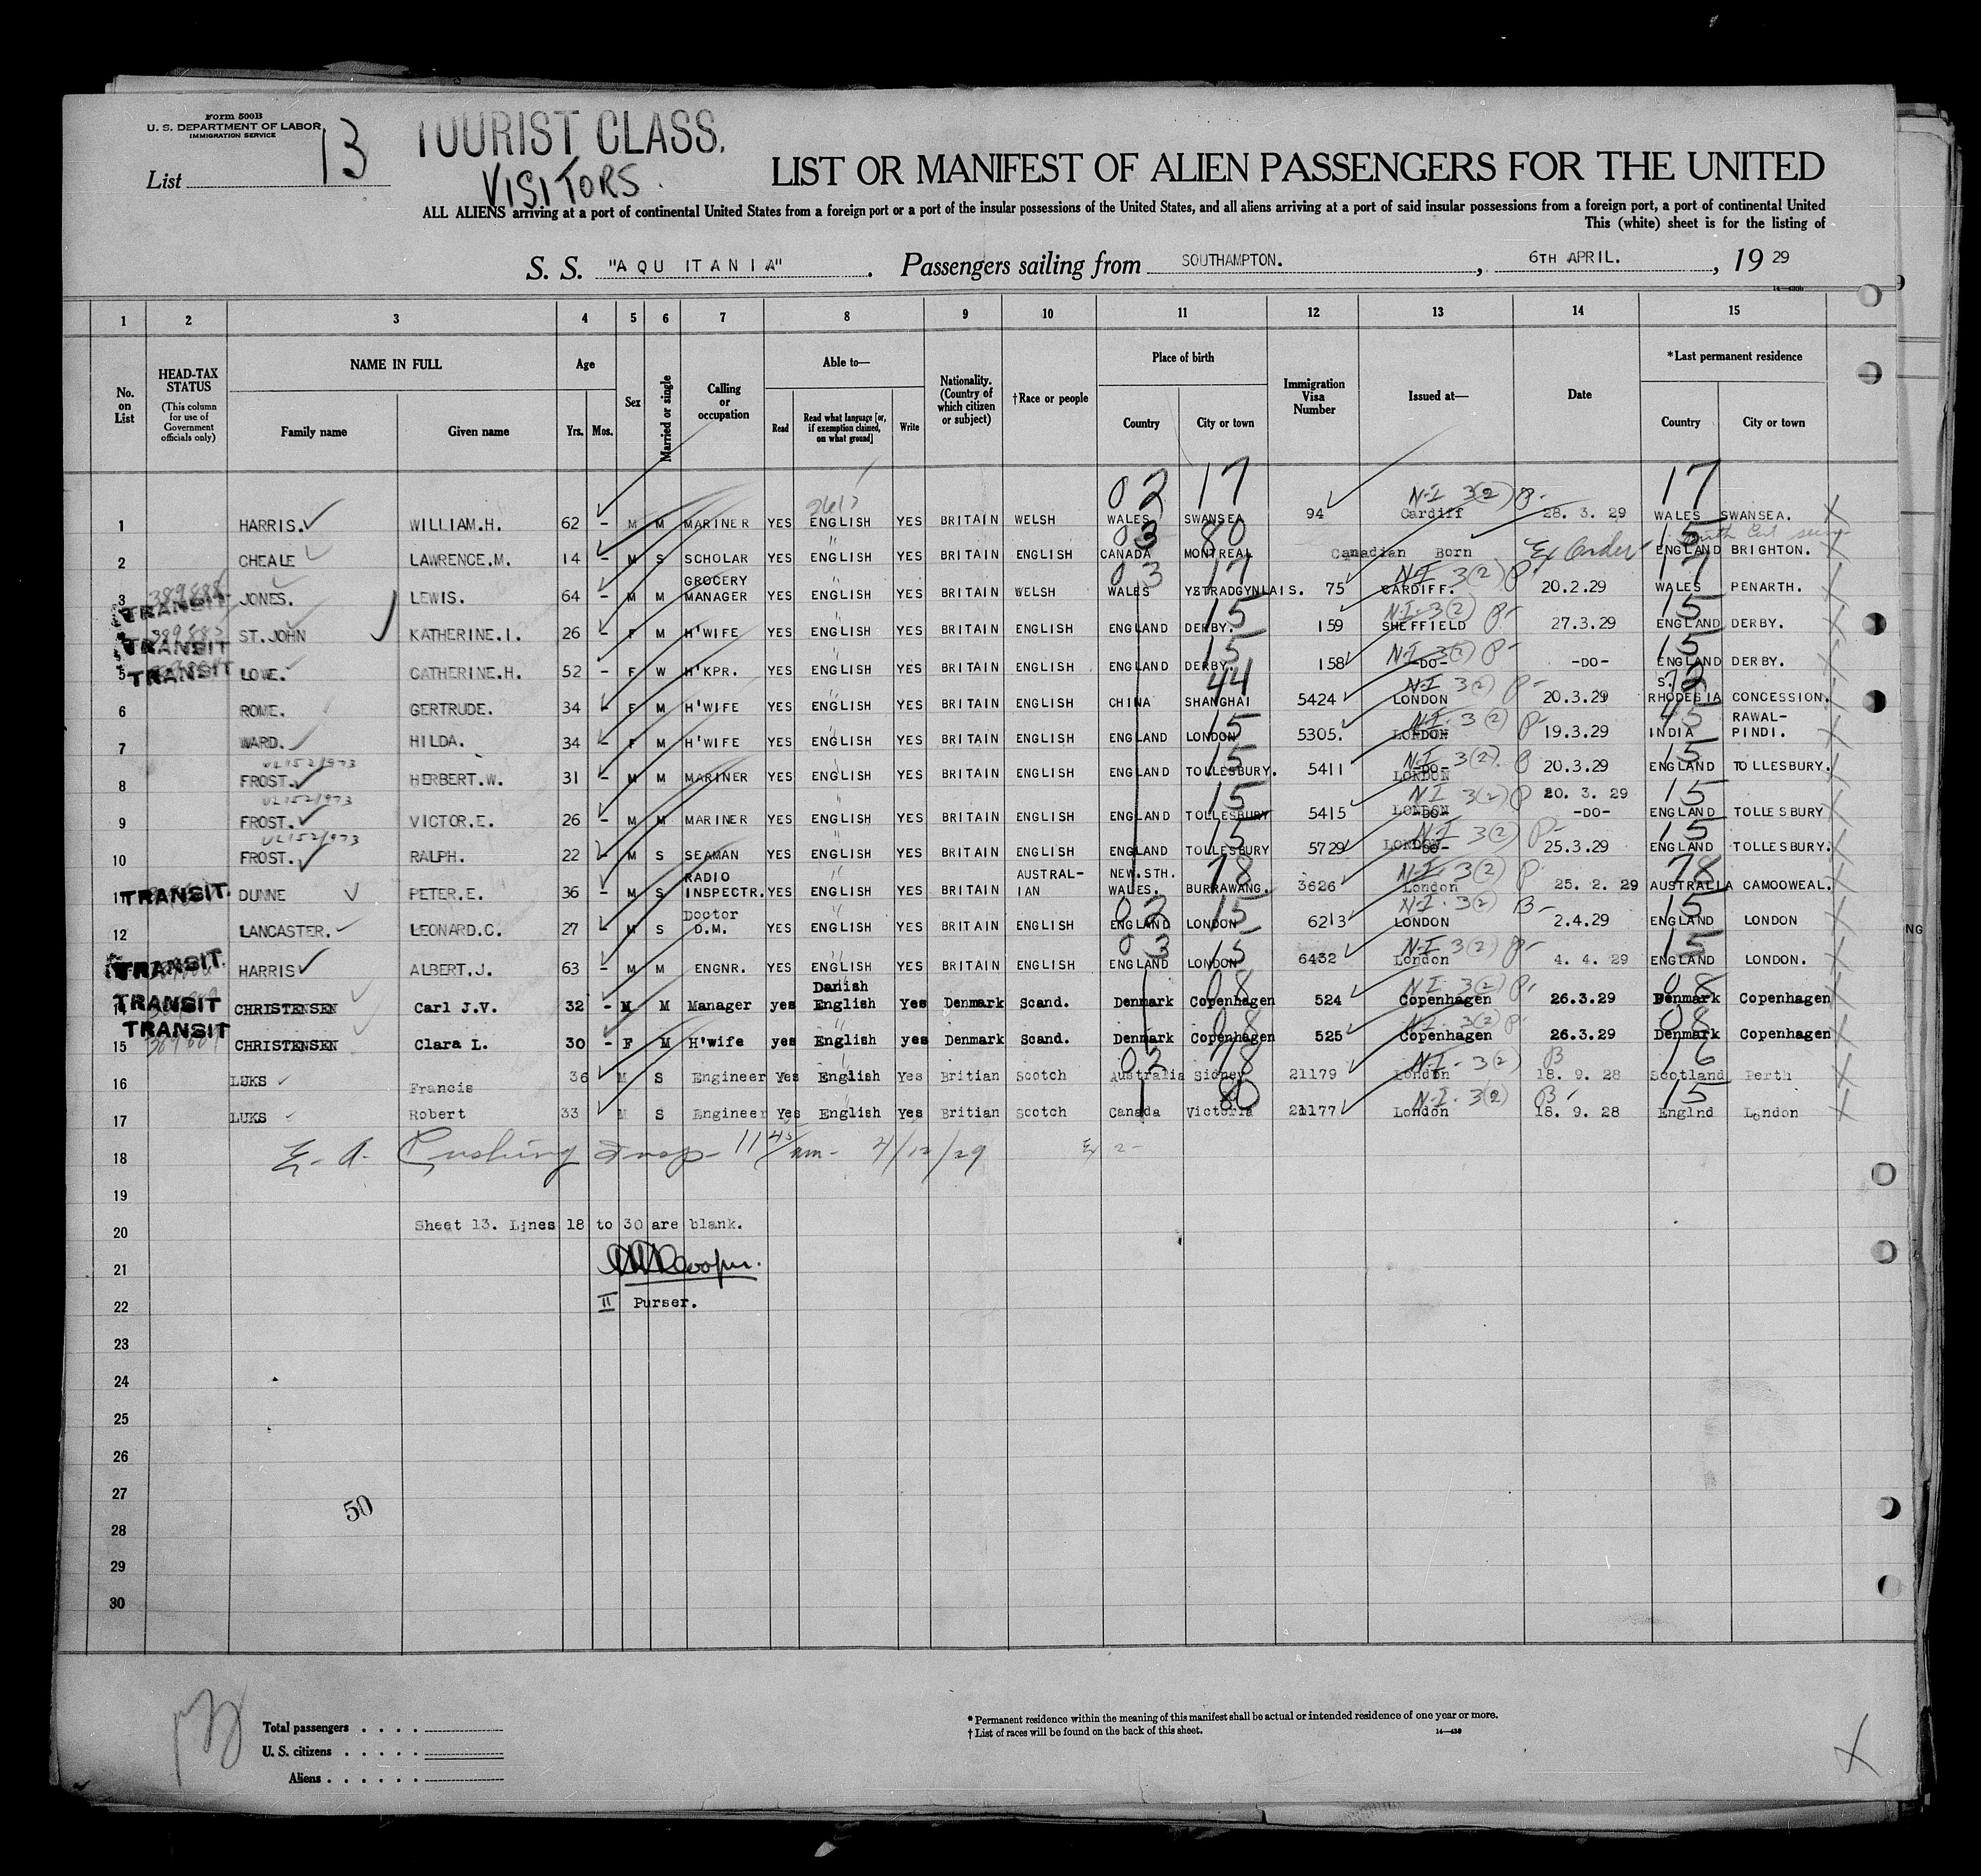 Form 500B
U. S. DEPARTMENT OF LABOR
IMMIGRATION SERVICE
List 13
TOURIST CLASS.
VISITORS.
LIST OR MANIFEST OF ALIEN PASSENGERS FOR THE UNITED
ALL ALIENS arriving at a port of continental United States from a foreign port or a port of the insular possessions of the United States, and all aliens arriving at a port of said insular possessions from a foreign port, a port of continental United
This (white) sheet is for the listing of
S. S. "AQUITANIA". Passengers sailing from SOUTHAMPTON., 6TH APRIL., 19 29
1 2 3 4 5 6 7 8 9 10 11 12 13 14 15
No. on List
HEAD-TAX STATUS (This column for use of Government officials only)
NAME IN FULL Family name Given name
Age Yrs. Mos.
Sex
Married or single
Calling or occupation
Able to— Read Read what language [or, if exemption claimed, on what ground] Write
Nationality. (Country of which citizen or subject)
†Race or people
Place of birth Country City or town
Immigration Visa Number
Issued at—
Date
*Last permanent residence Country City or town
02 17 N-I 3(2) P- 17
1 HARRIS. WILLIAM.H. 62 - M M MARINER YES ENGLISH YES BRITAIN WELSH WALES SWANSEA 94 Cardiff 28. 3. 29 WALES SWANSEA.
03 80 15
2 CHEALE LAWRENCE.M. 14 - M S SCHOLAR YES ENGLISH YES BRITAIN ENGLISH CANADA MONTREAL Canadian Born Ex Order ENGLAND BRIGHTON.
03 17 N-I 3(2) P- 17
3 TRANSIT JONES. LEWIS. 64 - M M GROCERY MANAGER YES ENGLISH YES BRITAIN WELSH WALES YSTRADGYNLAIS. 75 CARDIFF. 20.2.29 WALES PENARTH.
15 N-I 3(2) P- 15
TRANSIT ST.JOHN KATHERINE.I. 26 - F M H'WIFE YES ENGLISH YES BRITAIN ENGLISH ENGLAND DERBY. 159 SHEFFIELD 27.3.29 ENGLAND DERBY.
15 N-I 3(2) P- 15
5 TRANSIT LOWE. CATHERINE.H. 52 - F W H'KPR. YES ENGLISH YES BRITAIN ENGLISH ENGLAND DERBY. 158 -DO- -DO- ENGLAND DERBY.
44 N-I 3(2) P- 72
6 ROWE. GERTRUDE. 34 - F M H'WIFE YES ENGLISH YES BRITAIN ENGLISH CHINA SHANGHAI 5424 LONDON 20.3.29 S. RHODESIA CONCESSION.
15 N-I 3(2) P- 45
7 WARD. HILDA. 34 - F M H'WIFE YES ENGLISH YES BRITAIN ENGLISH ENGLAND LONDON 5305. LONDON 19.3.29 INDIA RAWAL- PINDI.
15 N-I 3(2) P 15
8 FROST. HERBERT.W. 31 - M M MARINER YES ENGLISH YES BRITAIN ENGLISH ENGLAND TOLLESBURY. 5411 -DO- LONDON 20.3.29 ENGLAND TOLLESBURY.
15 N-I 3(2) P 20. 3. 29 15
9 FROST. VICTOR.E. 26 - M M MARINER YES ENGLISH YES BRITAIN ENGLISH ENGLAND TOLLESBURY 5415 LONDON -DO- -DO- ENGLAND TOLLESBURY
15 N-I 3(2) P- 15
10 FROST. RALPH. 22 - M S SEAMAN YES ENGLISH YES BRITAIN ENGLISH ENGLAND TOLLESBURY 5729 LONDON -DO- 25.3.29 ENGLAND TOLLESBURY.
78 N-I 3(2) P 78
11 TRANSIT. DUNNE PETER.E. 36 - M S RADIO INSPECTR. YES ENGLISH YES BRITAIN AUSTRAL- IAN NEW.STH. WALES. BURRAWANG. 3626 London 25. 2. 29 AUSTRALIA CAMOOWEAL.
02 15 N-I 3(2) B- 15
12 LANCASTER. LEONARD.C. 27 - M S Doctor D.M. YES ENGLISH YES BRITAIN ENGLISH ENGLAND LONDON 6213 LONDON 2.4.29 ENGLAND LONDON
03 15 N-I 3(2) P- 15
TRANSIT. HARRIS ALBERT.J. 63 - M M ENGNR. YES ENGLISH YES BRITAIN ENGLISH ENGLAND LONDON 6432 London 4. 4. 29 ENGLAND LONDON.
08 N-I 3(2) P- 08
14 TRANSIT CHRISTENSEN Carl J.V. 32 - M M Manager yes Danish English Yes Denmark Scand. Denmark Copenhagen 524 Copenhagen 26.3.29 Denmark Copenhagen
08 N-I 3(2) P- 08
15 TRANSIT CHRISTENSEN Clara L. 30 - F M H'wife yes English yes Denmark Scand. Denmark Copenhagen 525 Copenhagen 26.3.29 Denmark Copenhagen
02 78 N-I 3(2) B 16
16 LUKS Francis 36 M S Engineer Yes English Yes Britian Scotch Australia Sidney 21179 London 18. 9. 28 Scotland Perth
80 N-I 3(2) B- 15
17 LUKS Robert 33 M S Engineer Yes English Yes Britian Scotch Canada Victoria 21177 London 18. 9. 28 Englnd London
18 E. A. Cushing Insp 11 45/am- 4/12/29
19
20 Sheet 13. Lines 18 to 30 are blank.
21 Cooper.
22 II Purser.
23
24
25
26
27
50
28
29
30
Total passengers . . . .
U. S. citizens . . . . .
Aliens . . . . . .
* Permanent residence within the meaning of this manifest shall be actual or intended residence of one year or more.
† List of races will be found on the back of this sheet. 14—430